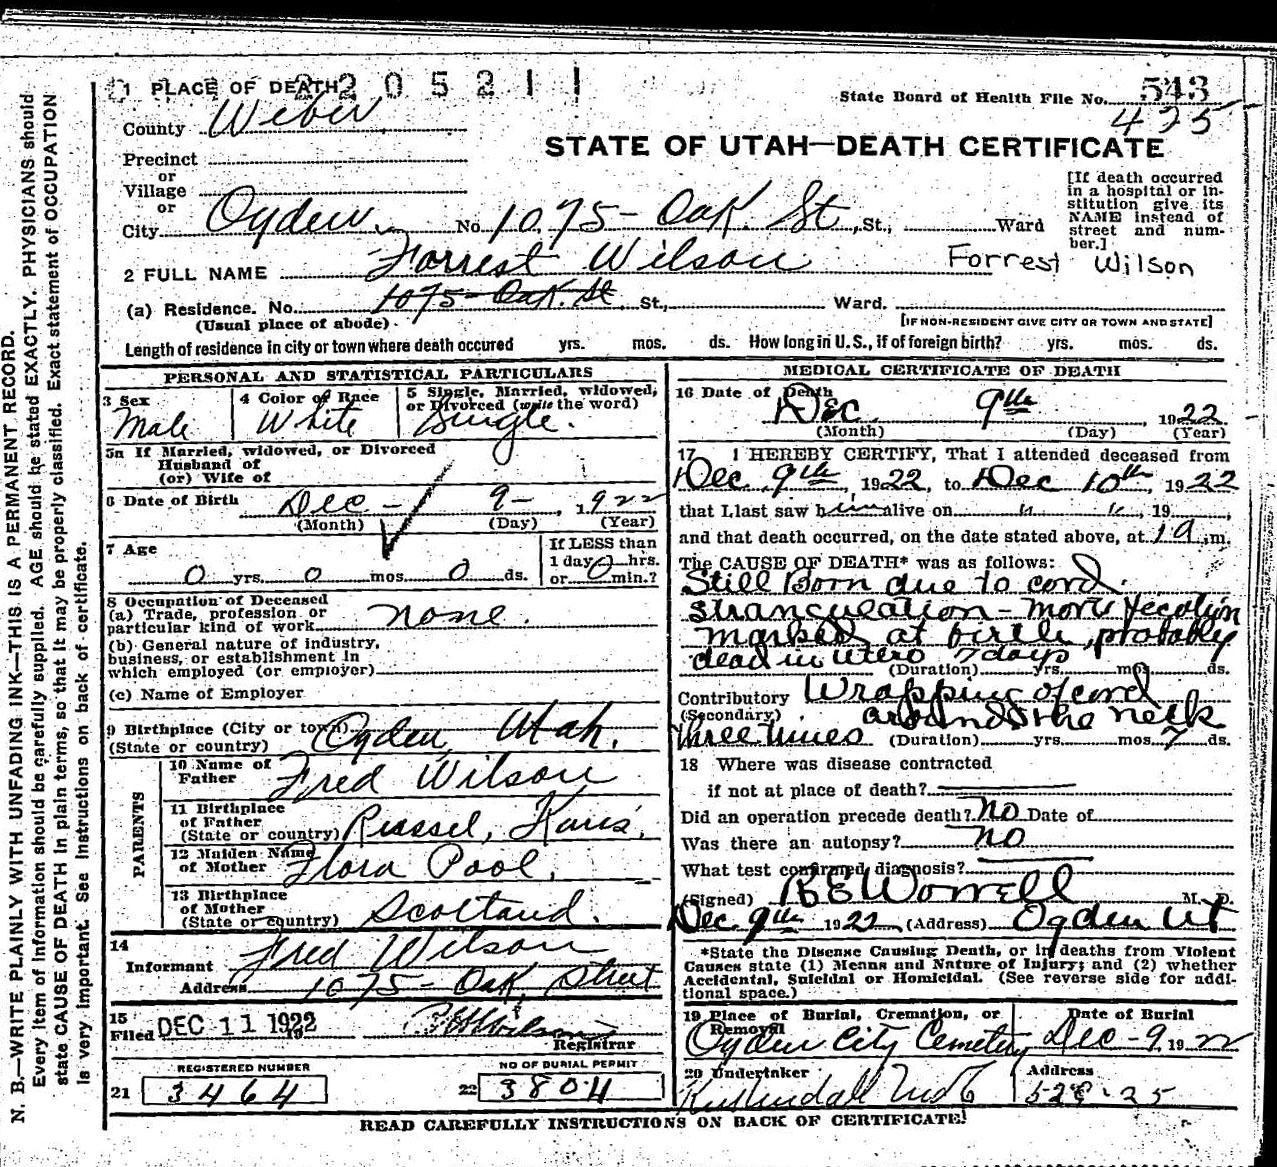 1 PLACE OF DEATH 2 2 0 5 2 1 1
State Board of Health File No. 543
425
County Weber
STATE OF UTAH—DEATH CERTIFICATE
Precinct
or
Village
or
City Ogden. No. 1075- Oak St, St., Ward
[If death occurred
in a hospital or in-
stitution give its
NAME instead of
street and num-
ber.]
2 FULL NAME Forrest Wilson Forrest Wilson
(a) Residence. No. 1075- Oak. St St., Ward.
(Usual place of abode) [IF NON-RESIDENT GIVE CITY OR TOWN AND STATE]
Length of residence in city or town where death occured yrs. mos. ds. How long in U. S., if of foreign birth? yrs. mos. ds.
PERSONAL AND STATISTICAL PARTICULARS
3 Sex 4 Color or Race 5 Single, Married, widowed,
or Divorced (write the word)
Male White Single.
5a If Married, widowed, or Divorced
Husband of
(or) Wife of
6 Date of Birth Dec - 9-, 1922
(Month) (Day) (Year)
7 Age If LESS than
1 day 0 hrs.
0 yrs. 0 mos. 0 ds. or 0 min.?
8 Occupation of Deceased
(a) Trade, profession or
particular kind of work none.
(b) General nature of industry,
business, or establishment in
which employed (or employer)
(c) Name of Employer
9 Birthplace (City or town) Ogden, Utah.
(State or country)
PARENTS
10 Name of
Father Fred Wilson
11 Birthplace
of Father
(State or country) Russel, Kans.
12 Maiden Name
of Mother Flora Pool.
13 Birthplace
of Mother
(State or country) Scotland.
14
Informant Fred Wilson
Address 1075- Oak, Street
15
Filed DEC 11 1922 19
Registrar
REGISTERED NUMBER NO OF BURIAL PERMIT
21 3464 22 3804
MEDICAL CERTIFICATE OF DEATH
16 Date of Death
Dec 9th 1922
(Month) (Day) (Year)
17 I HEREBY CERTIFY, That I attended deceased from
Dec 9th, 1922, to Dec 10th, 1922
that I last saw him alive on " ", 19
and that death occurred, on the date stated above, at 1 a. m.
The CAUSE OF DEATH* was as follows:
Still Born due to cord
strangulation -
marked at birth, probably
dead in utero 7 days
(Duration) yrs. mos. ds.
Contributory Wrapping of cord
(Secondary) around the neck
three times (Duration) yrs. mos. 7 ds.
18 Where was disease contracted
if not at place of death?
Did an operation precede death? No Date of
Was there an autopsy? no
What test confirmed diagnosis?
(Signed) Worrell M. D.
Dec 9th 1922 (Address) Ogden Ut
*State the Disease Causing Death, or in deaths from Violent
Causes state (1) Menns and Nature of Injury; and (2) whether
Accidental, Suicidal or Homicidal. (See reverse side for addi-
tional space.)
19 Place of Burial, Cremation, or Date of Burial
Removal
Ogden City Cemetery Dec - 9, 1922
20 Undertaker Address
528 - 25
READ CAREFULLY INSTRUCTIONS ON BACK OF CERTIFICATE!
N. B.—WRITE PLAINLY WITH UNFADING INK—THIS IS A PERMANENT RECORD.
Every item of information should be carefully supplied. AGE should be stated EXACTLY. PHYSICIANS should
state CAUSE OF DEATH in plain terms, so that it may be properly classified. Exact statement of OCCUPATION
is very important. See instructions on back of certificate.